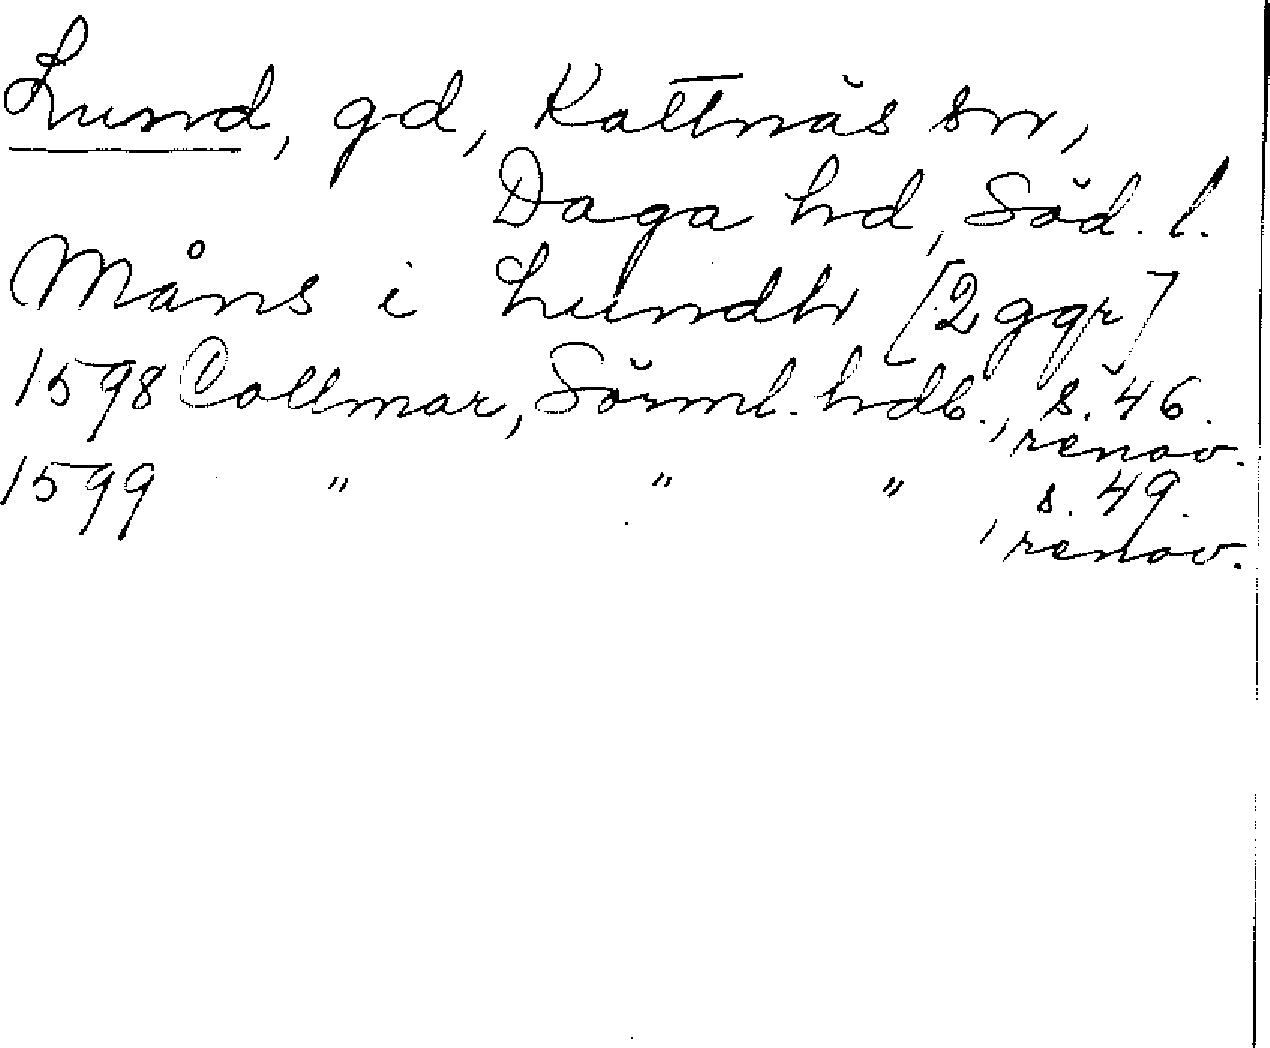 Lund, gd, Kattnäs sn,
Daga hd, Söd. l.
Måns i Lundh [2 ggr]
1598 Collmar, Sörml. hdb., s. 46.
renov.
1599 " " " , s. 49.
renov.